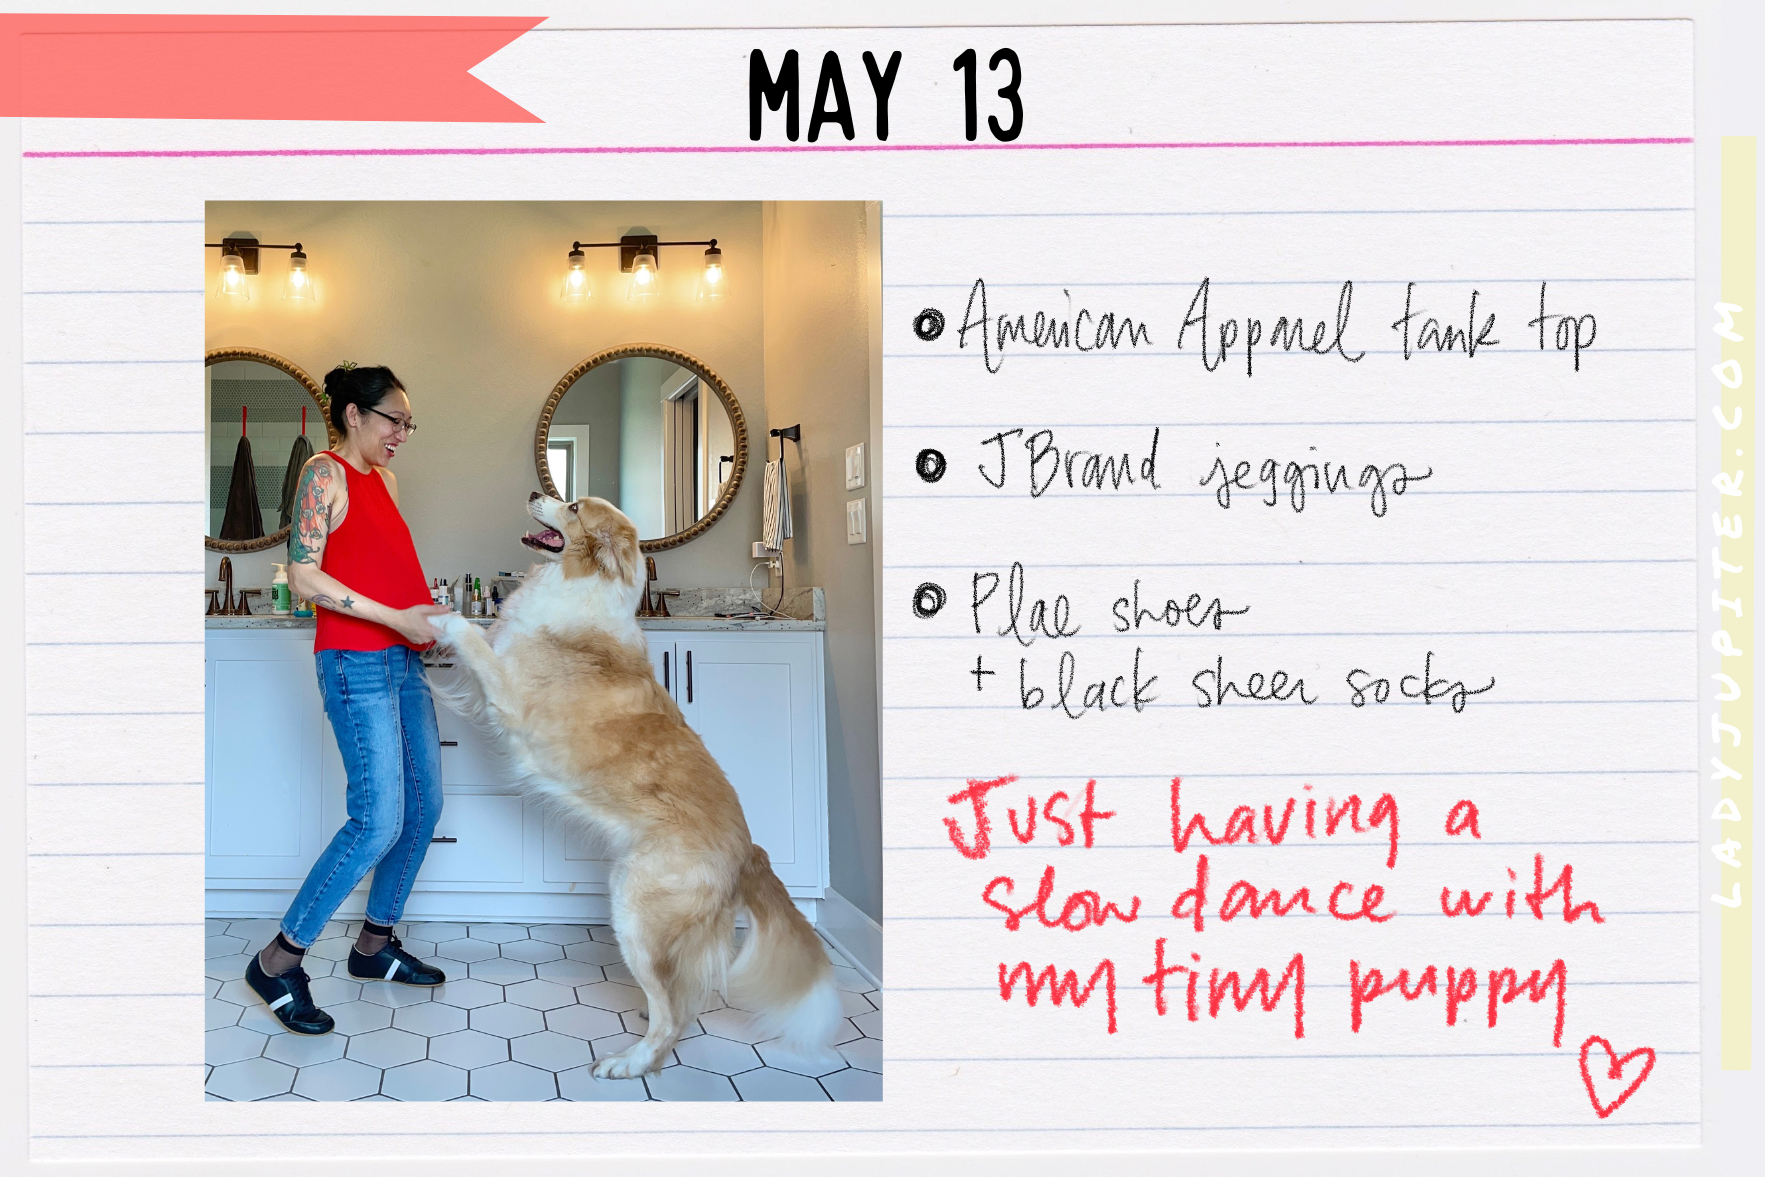 MAY 13
American Apparel tank top
J Brand jeggings
Plae shoes
+ black sheer socks
Just having a
slow dance with
my tiny puppy
LADYJUPITER.COM